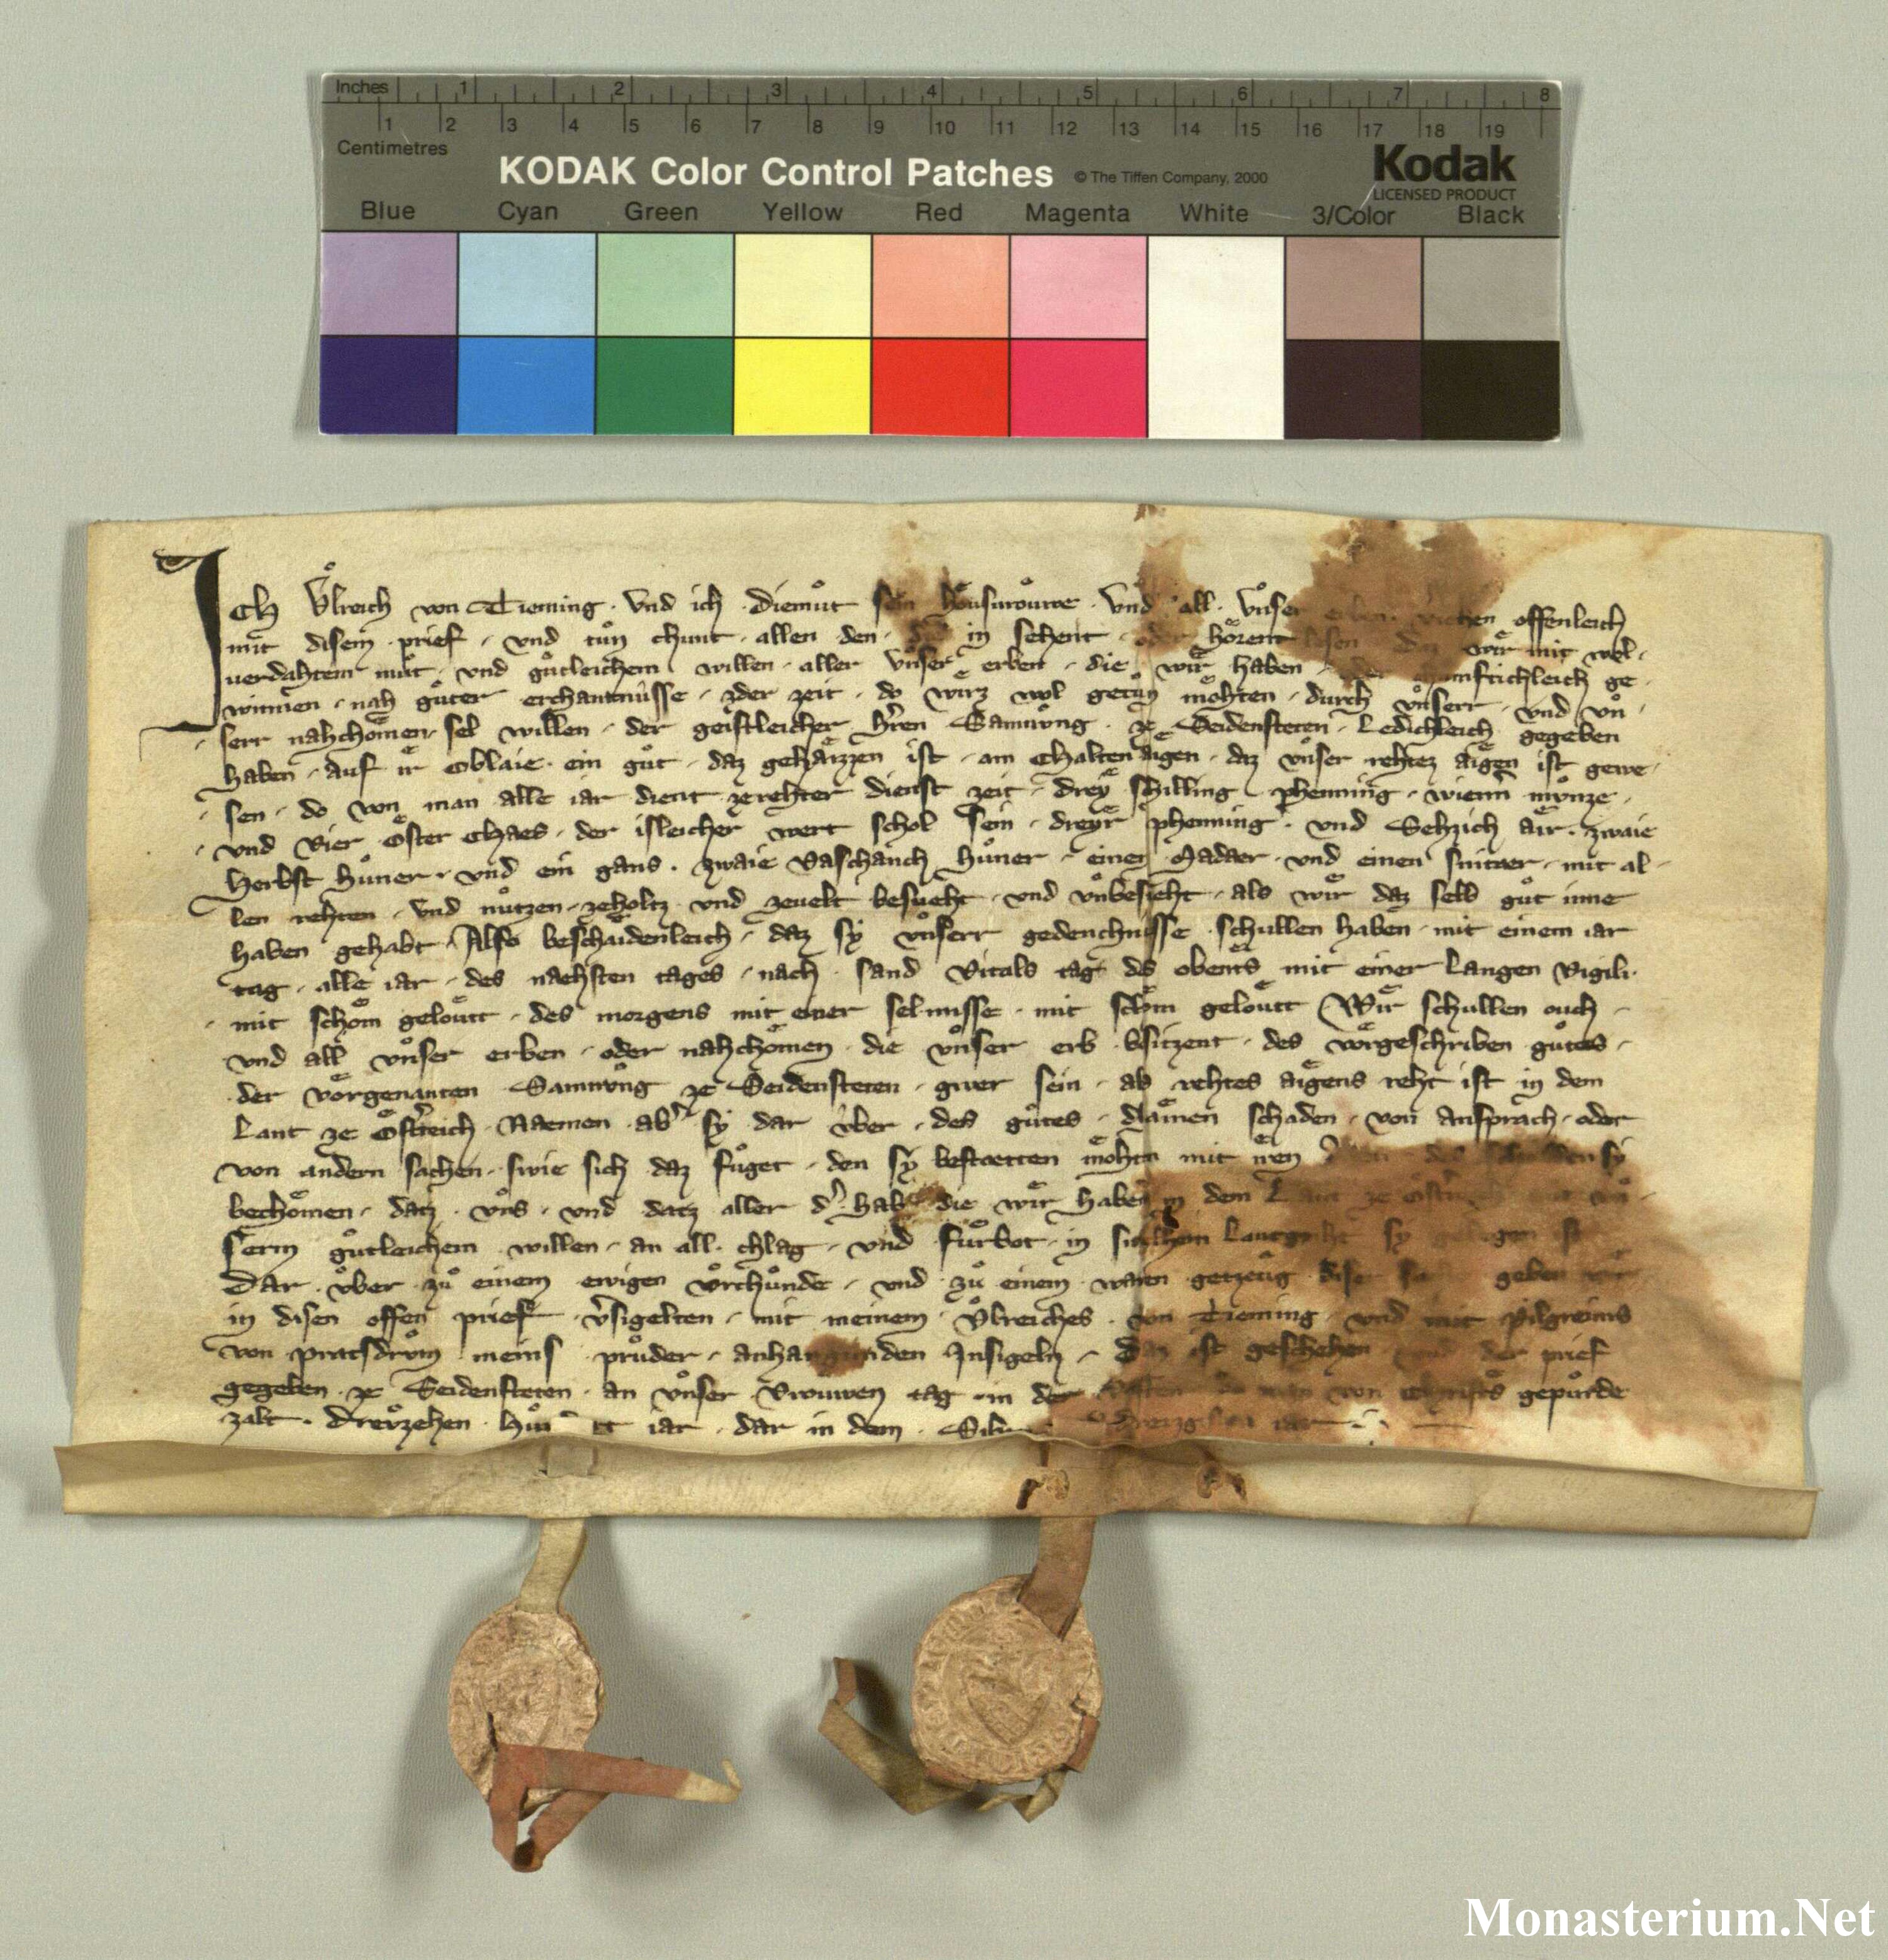 Inches 1 2 3 4 5 6 7 8
1 2 3 4 5 6 7 8 9 10 11 12 13 14 15 16 17 18 19
Centimetres
KODAK Color Control Patches © The Tiffen Company, 2000 Kodak
LICENSED PRODUCT
Blue Cyan Green Yellow Red Magenta White 3/Color Black
Ich Vͦlreich von Tieming · Vnd ich · Diemuͦt sein housvrouwe · Vnd all · Vnser offenleich
mit disem prief · vnd tuͦn chunt · allen den · die in sehent · oder hoͤrent lesen daz wir mit wol ·
verdahtem muͦt · vnd guͦtleichem willen · aller vnser erben · die wir haben · oder ge ·
winnen · nah guͦter erchantnusse · zder zeit · do wirz wol getuͦn mohten · durch vnserr · vnd vn ·
serr nahchomen · sel willen · der geistleicher hern Samnvng · ze Seidensteten · Ledichleich gegeben
haben · auf ir Oblaie · ein guͦt · daz gehaizzen ist · am Chaltenaigen · daz vnser rehtez aigen ist gewe ·
sen · do von man alle iar dient ze rehter dienst zeit · drey schilling phenning · wienn mvnze ·
vnd Vier Oster Chaes · der isleicher wert schol sein · dreyr phenning · vnd Sehzich air · zwaie
herbst huͦner · vnd ein gans · zwaie Vaschanch huͦner · einen Madaer · vnd einen snitaer · mit al ·
len rehten · vnd nutzen · zeholtz vnd zevelt besucht · vnd vnbesucht · als wir daz selb guͦt inne
haben gehabt · Also beschaidenleich · daz sy vnserr gedenchnusse schullen haben · mit einem iar
tag · alle iar · des naehsten tages · nach · sand Vitals tag des obents mit einer Langen Vigili ·
mit schom geloutt · des morgens mit einer selmisse · mit schom geloutt Wir schullen ouch ·
vnd all vnser erben · oder nahchomen · die vnser erb bsitzent · des vorgeschriben guͦtes ·
der vorgenanten Samnvng ze Seidensteten · gwer sein · als rehtes aigens reht ist in dem
Lant ze Osterreich · Naemen aber sy dar vber · des guͦtes · dhainen schaden · von Ansprach · oder
von andern sachen · swie sich daz fuͦget · den sy bestaetten mohten mit iren sy
bechomen · datz · vns · vnd datz aller der hab die wir haben in dem Lant ze
serm guͦtleichem willen · an all · chlag · vnd furbot · in swelhem Lantgeriht sy
Dar · vber zuͦ einem ewigen vrchunde · vnd zuͦ einem waren getzeug diser geben wir
in disen offen prief · versigelten · mit meinem · Vͦlreiches · von Tieming · vnd mit Pilgreims
von Pratsdrvm meins pruͦder · anhangunden Insigeln · Daz ist geschehen vnd der prief
gegeben · ze Seidensteten · an vnser Vrouwen tag · in der Vasten do man von Christs gepurde
zalt · Drevzehen · Hundert iar · dar in dem iar
Monasterium.Net